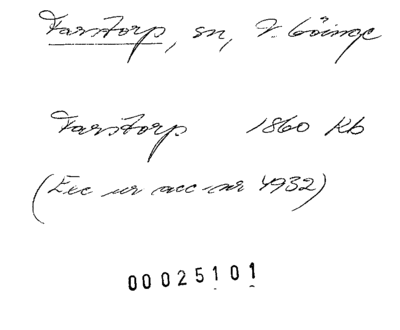 Farstorp, sn, V. Göinge
Farstorp 1860 Kb
(Exc ur acc-nr 4932)
00025101